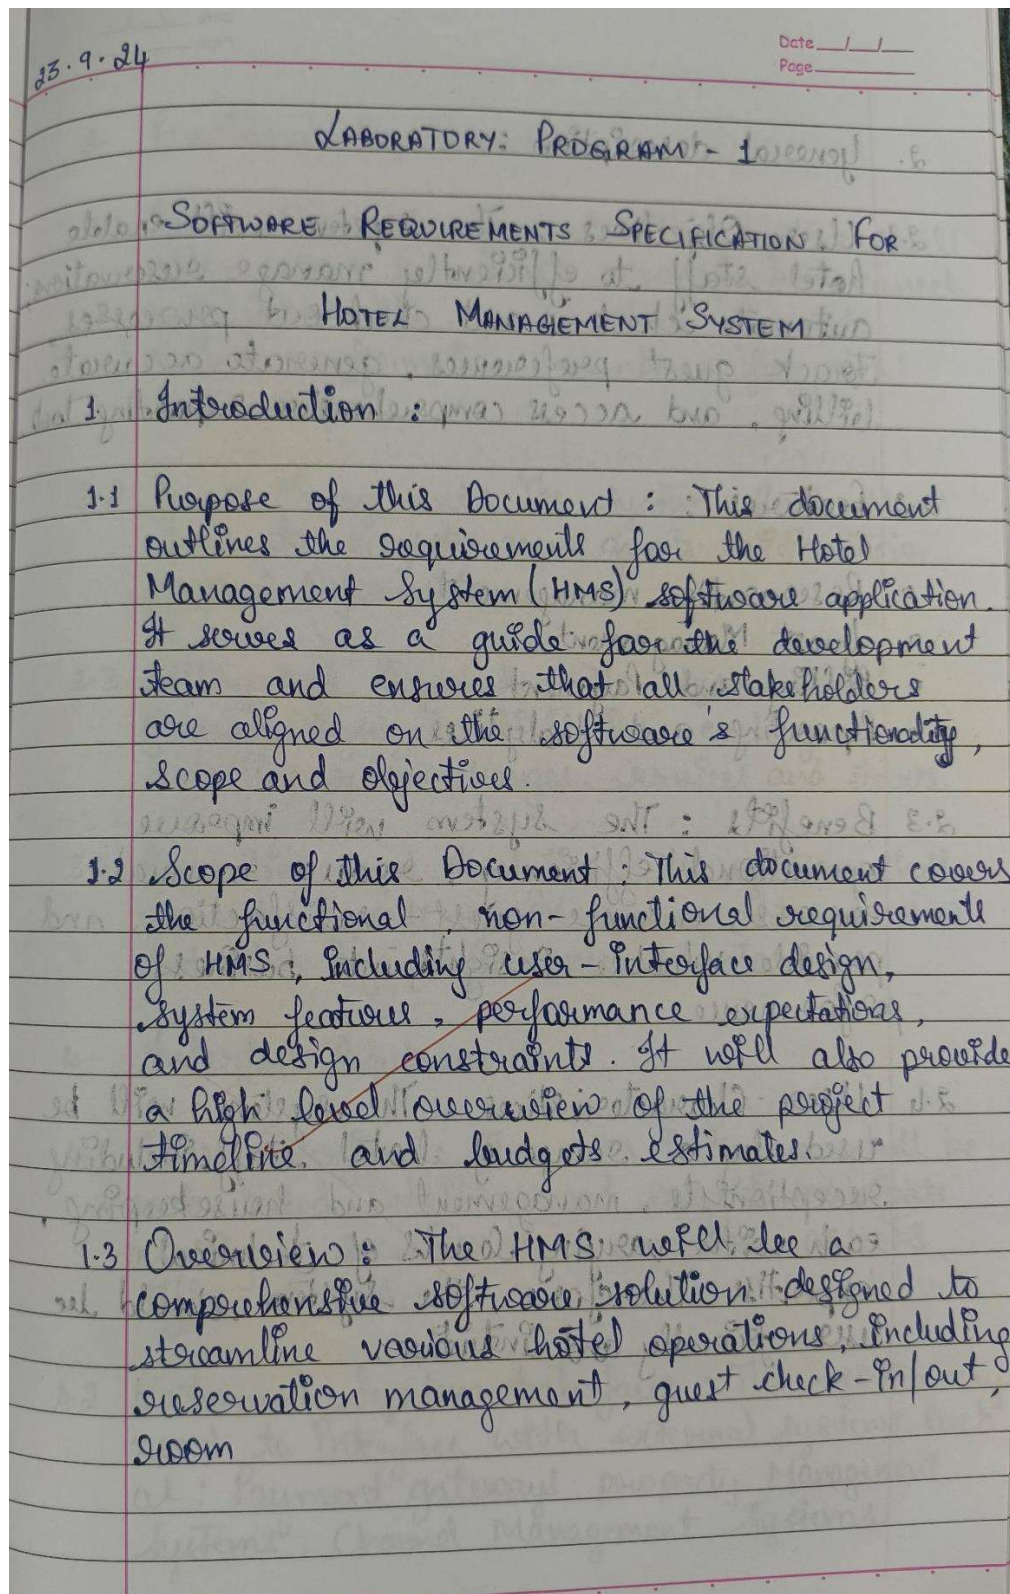 Date __/__/__
Page
23.9.24
LABORATORY: PROGRAM - 1
SOFTWARE REQUIREMENTS SPECIFICATION FOR
HOTEL MANAGEMENT SYSTEM
1. Introduction :
1.1 Purpose of this Document : This document
outlines the requirements for the Hotel
Management System (HMS) software application.
It serves as a guide for the development
team and ensures that all stakeholders
are aligned on the software's functionality,
scope and objectives.
1.2 Scope of this Document : This document covers
the functional, non-functional requirements
of HMS, including user-interface design,
system features, performance expectations,
and design constraints. It will also provide
a high level overview of the project
timeline and budgets estimates.
1.3 Overview : The HMS will be a
comprehensive software solution designed to
streamline various hotel operations, including
reservation management, guest check-in/out,
room